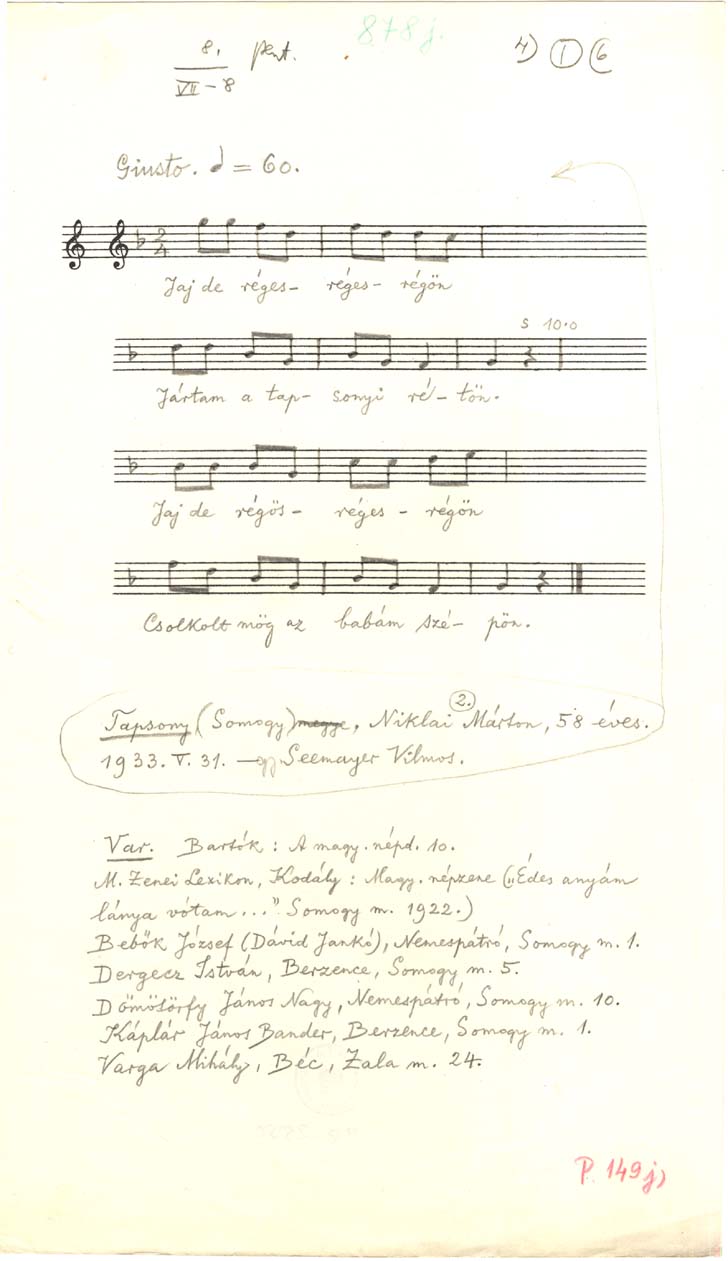 878 j.
8. pent. 4) I 6
VII-8
Giusto. = 60.
2
4
Jaj de réges- réges- régön
s 10.0
Jártam a tap- sonyi ré- tön.
Jaj de régös- réges - régön
Csolkolt mög az babám szé- pön.
2.
Tapsony (Somogy) megye, Niklai Márton, 58 éves.
1933. V. 31. — gy Seemayer Vilmos.
Var. Bartók: A magy. népd. 10.
M. Zenei Lexikon, Kodály: Magy. népzene („Édes anyám
lánya vótam..." Somogy m. 1922.)
Bebők József (Dávid Jankó), Nemespátró, Somogy m. 1.
Dergecz István, Berzence, Somogy m. 5.
Dömösörfy János Nagy, Nemespátró, Somogy m. 10.
Káplár János Bander, Berzence, Somogy m. 1.
Varga Mihály, Béc, Zala m. 24.
P. 149 j)